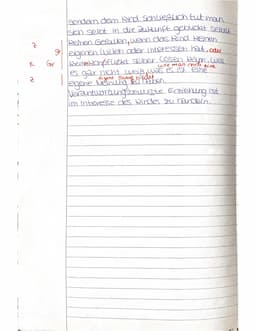 sondern dem Kind. Schließlich tut man
sich selbst in die Zukunft gebuckt selbst
Z keinen Gefallen, wenn das Kind keinen
g eigenen Willen oder Interessen hat, oder
R Gr keine Konflikte selber lösen kann, weil
es gar nicht weiß, wie es ist eine wie man sich eine
Z eigene Meinung zu haben.
Verantwortungsbewusste Erziehung ist
im Interesse des Kindes zu handeln.